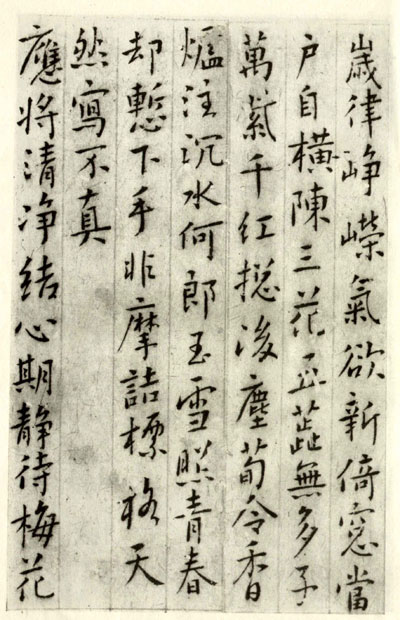 歳律崢嶸氣欲新倚窓當
户自橫陳三花五蕋無多子
萬紫千紅揔後塵荀令香
爐注沉水何郎玉雪照青春
却慙下手非摩詰標格天
然寫不真
應將清净結心期靜待梅花